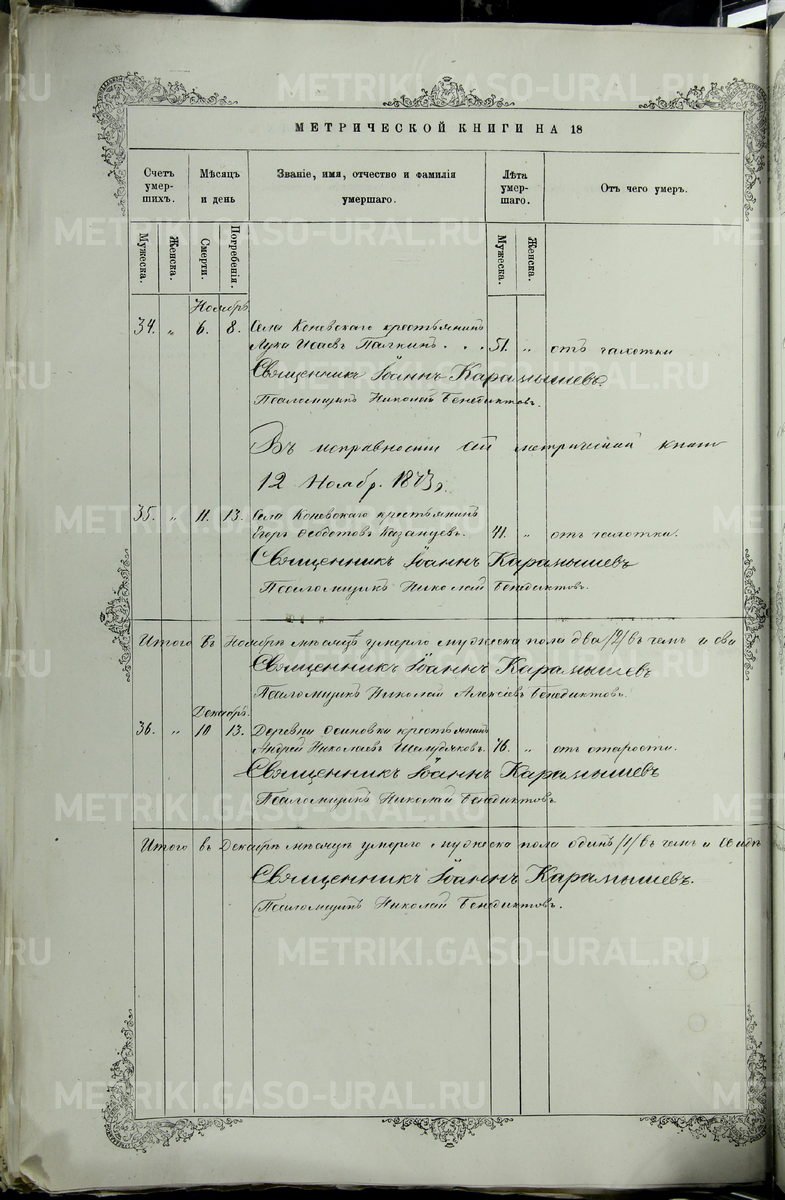 МЕТРИЧЕСКОЙ КНИГИ НА 18
Счетъ умер-шихъ.
Мѣсяцъ и день
Званіе, имя, отчество и фамилія умершаго.
Лѣта умер-шаго.
Отъ чего умеръ.
Мужеска.
Женска.
Смерти.
Погребенія.
Мужеска.
Женска.
Ноябрь
34. „ 6. 8. Села Коневскаго крестьянинъ
Лука Исаевъ 51. „ отъ чахотки
Священникъ Іоаннъ Карамышевъ
Псаломщикъ Николай Бенедиктовъ.
Въ исправности сей метрической книги
12 Ноябр. 1873 г.
35. „ 11. 13. Села Коневскаго крестьянинъ
Егоръ Ѳедотовъ Казанцевъ. 41. „ отъ чахотки.
Священникъ Іоаннъ Карамышевъ
Псаломщикъ Николай Бенедиктовъ.
Итого въ Ноябрѣ мѣсяцѣ умерло мужеска пола два /2/ въ чемъ и сви
Священникъ Іоаннъ Карамышевъ
Псаломщикъ Николай Алексѣевъ Бенедиктовъ.
Декабрь.
36. „ 10 13. Деревни Осиновки крестьянинъ
Андрей Николаевъ 76. „ отъ старости.
Священникъ Іоаннъ Карамышевъ
Псаломщикъ Николай Бенедиктовъ
Итого въ Декабрѣ мѣсяцѣ умерло мужеска пола одинъ /1/ въ чемъ и свидѣ
Священникъ Іоаннъ Карамышевъ.
Псаломщикъ Николай Бенедиктовъ.
METRIKI.GASO-URAL.RU